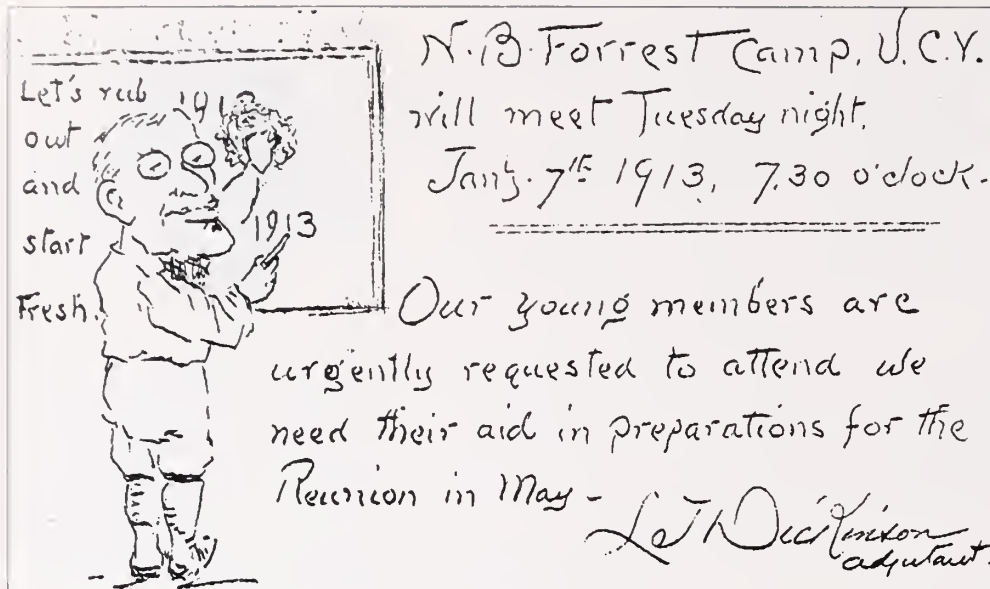 Let's rub
out
and
start
Fresh.
191
1913
N. B. Forrest Camp, U.C.V.
will meet Tuesday night,
Jany. 7th 1913, 7.30 o'clock.
Our young members are
urgently requested to attend we
need their aid in preparations for the
Reunion in May -
L T Dickinson
adjutant.